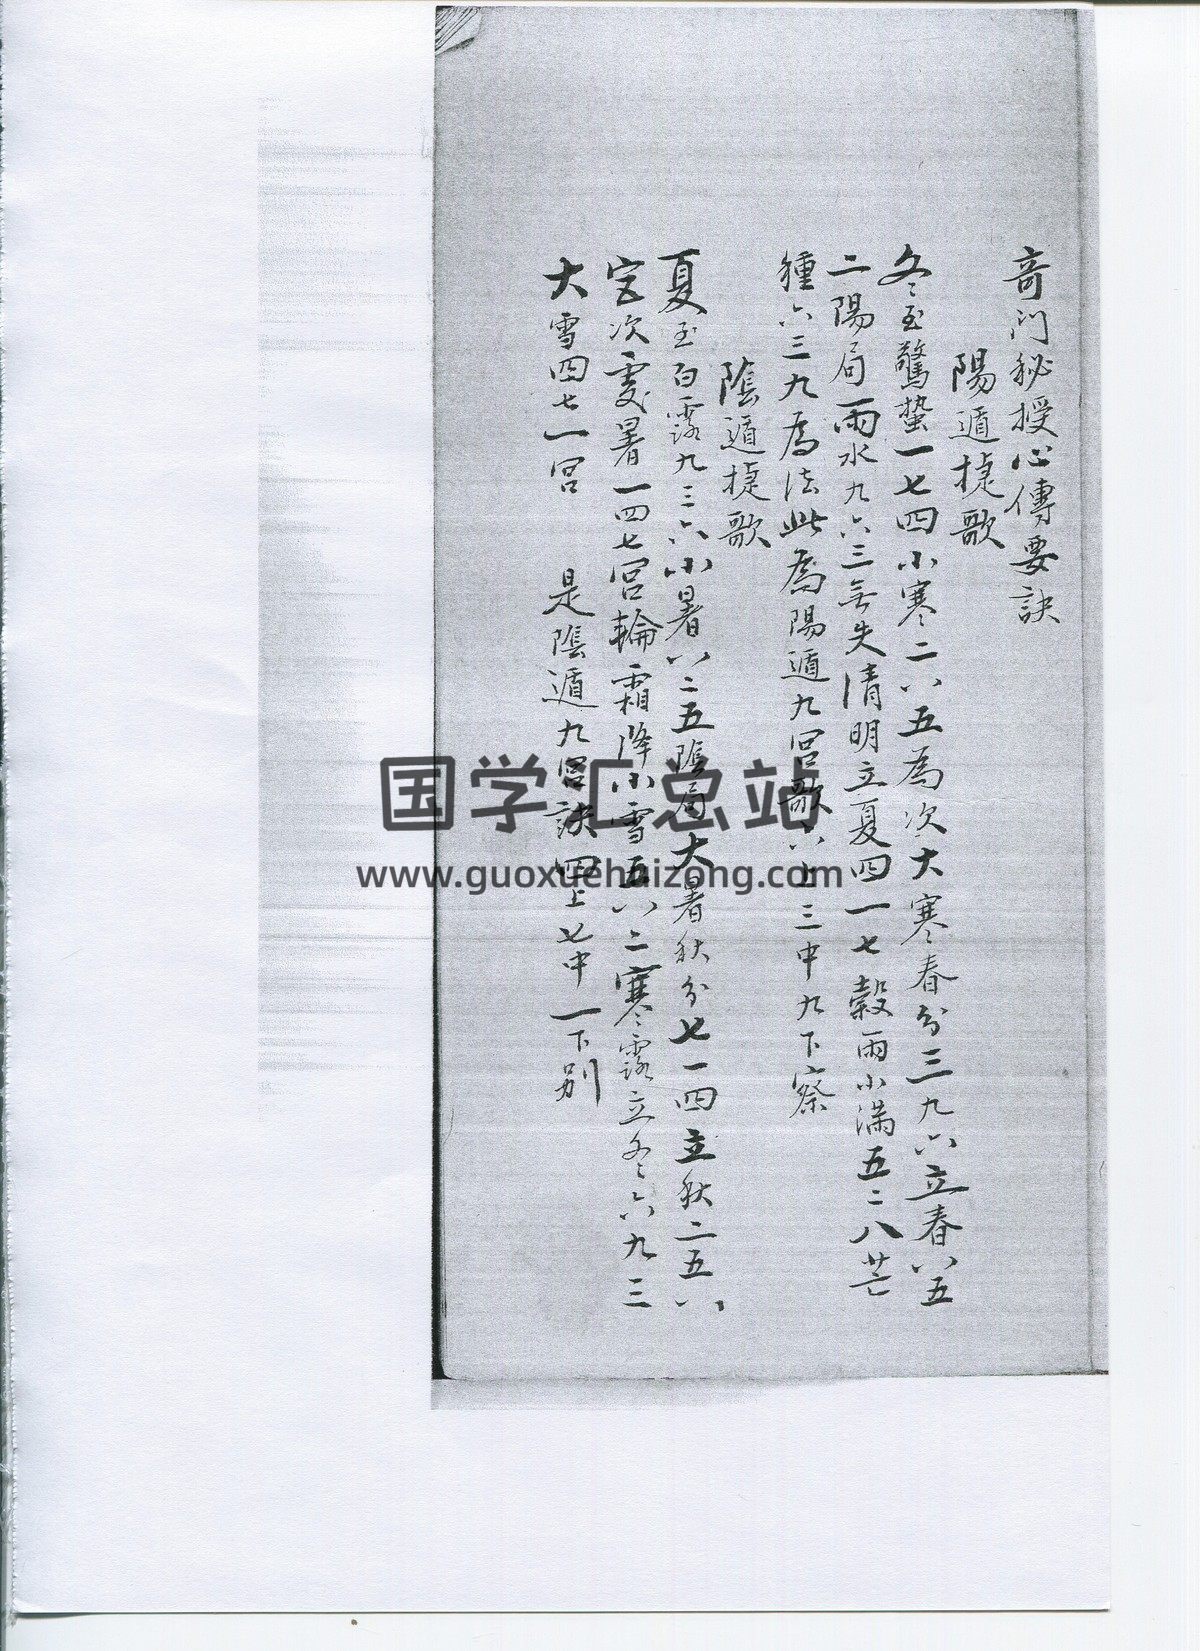 奇门秘授心傳要訣
陽遁捷歌
冬至驚蟄一七四小寒二八五為次大寒春分三九六立春八五
二陽局雨水九六三無失清明立夏四一七穀雨小满五二八芒
種六三九為法此為陽遁九宮歌六上三中九下察
陰遁捷歌
夏至白露九三六小暑八二五陰局大暑秋分七一四立秋二五八
宮次處暑一四七宮輪霜降小雪五八二寒露立冬六九三
大雪四七一宮 是陰遁九宮訣四上七中一下别
国学汇总站
www.guoxuehuizong.com